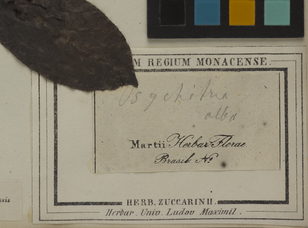 M REGIUM MONACENSE
Psychotria
alba
Martii Herbar. Florae
Brasil. No
HERB. ZUCCARINII.
Herbar. Univ. Ludov. Maximil.